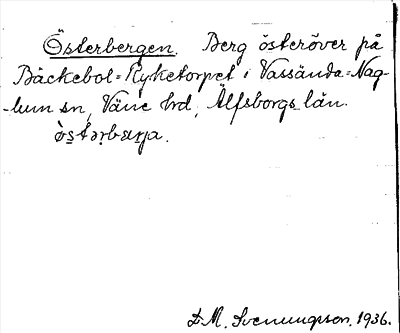 Österbergen. Berg österöver på
Bäckebol=Ryketorpet i Vassända=Nag-
-lum sn, Väne hrd, Älfsborgs län.
òstərbærja.
D.M. Svenungsson. 1936.